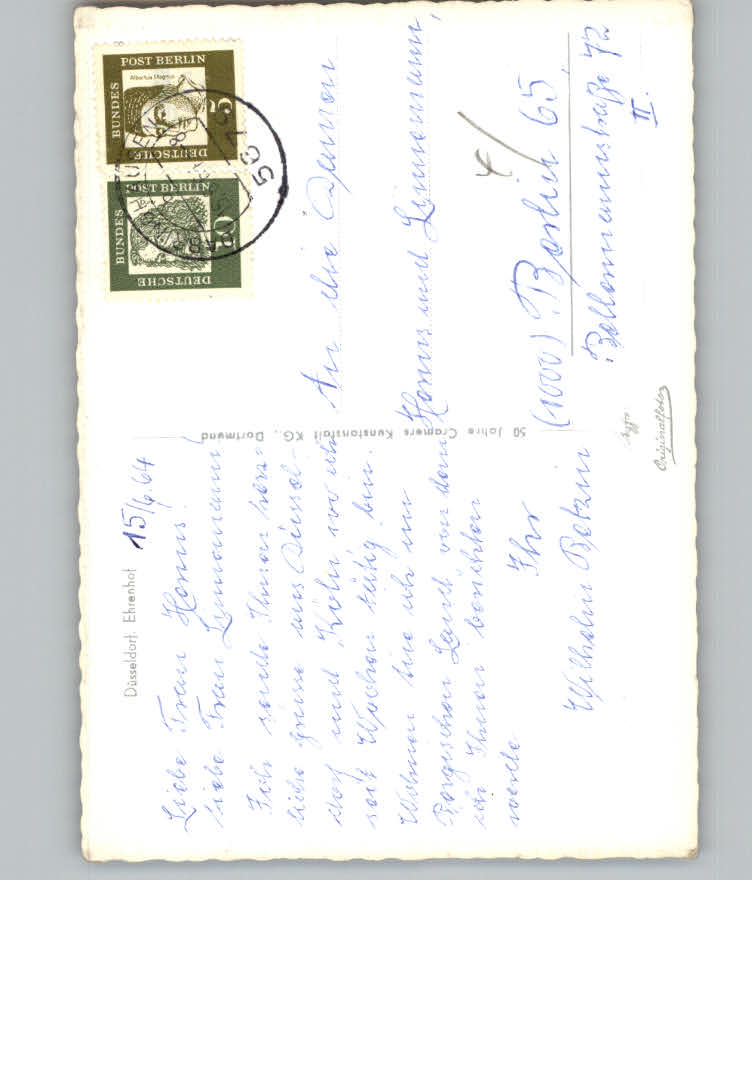 Düsseldorf, Ehrenhof
15/6 64
Liebe Frau Honus!
liebe Frau Linnemann!
Ich sende Ihnen herz-
liche Grüsse aus Düssel-
dorf und Köln wo ich
seit Wochen tätig bin.
Wohnen tue ich im
Bergischen Land von dem
ich Ihnen berichten
werde
Ihr
Wilhelm
50 Jahre Cramers Kunstanstalt KG., Dortmund
DEUTSCHE BUNDESPOST BERLIN
Albertus Magnus
5
DEUTSCHE BUNDESPOST BERLIN
10
An die Damen
Honus und Linnemann,
(1000) Berlin 65,
Bellermannstraße 72
II.
4/
Originalfoto